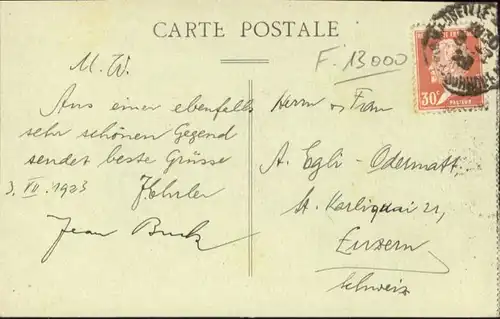 CARTE POSTALE
F. 13000
M. W.
Aus einer ebenfalls
sehr schönen Gegend
sendet beste Grüsse
3. VII. 1923
Jean
Herrn & Frau
A. Egli - Odermatt,
St. Karliquai 21,
Luzern
Schweiz
30c
PASTEUR